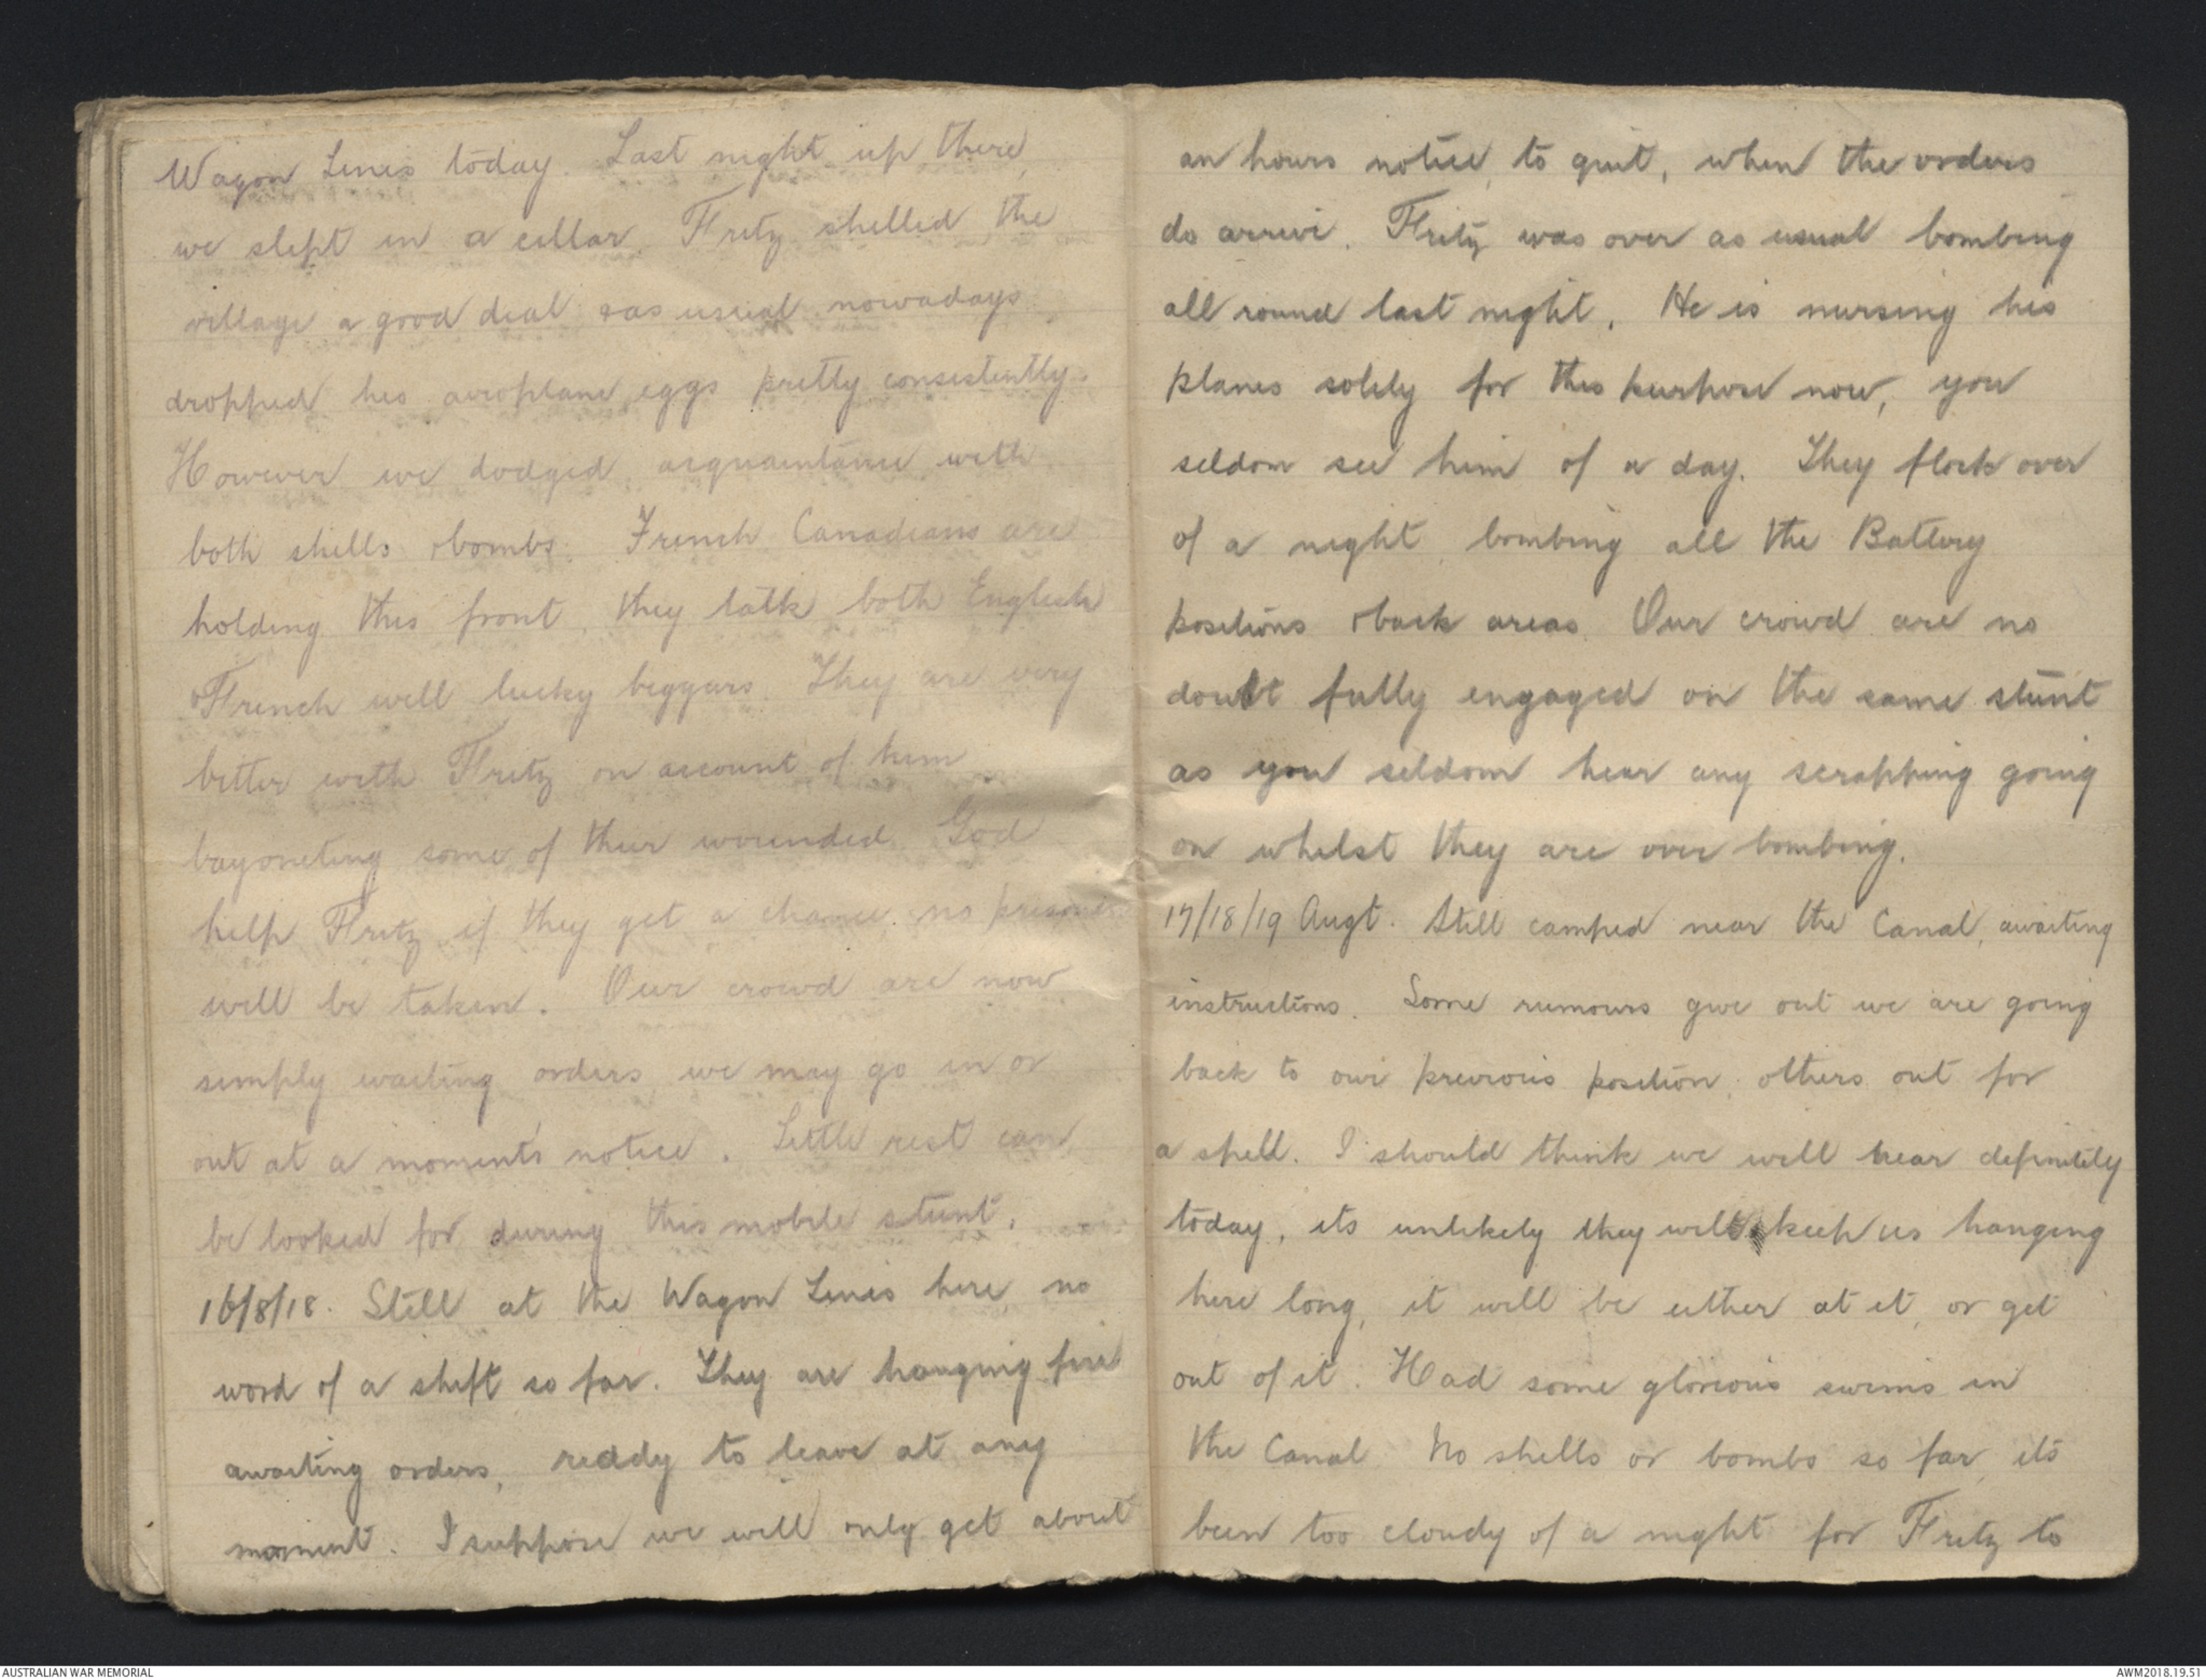 Wagon Lines today. Last night up there
we slept in a cellar. Fritz shelled the
village a good deal & as usual nowadays
dropped his aeroplane eggs pretty consistently.
However we dodged acquaintance with
both shells & bombs. French Canadians are
holding this front, they talk both English
& French well lucky beggars. They are very
bitter with Fritz on account of him
bayoneting some of their wounded. God
help Fritz if they get a chance. no prisoners
will be taken. Our crowd are now
simply waiting orders we may go in or
out at a moment's notice. Little rest can
be looked for during this mobile stunt.
16/8/18. Still at the Wagon Lines here, no
word of a shift so far. They are hanging fire
awaiting orders, reddy to leave at any
moment. I suppose we will only get about
an hours notice to quit, when the orders
do arrive. Fritz was over as usual bombing
all round last night. He is nursing his
planes solely for this purpose now, you
seldom see him of a day. They flock over
of a night bombing all the Battery
positions & back areas. Our crowd are no
doubt fully engaged on the same stunt
as you seldom hear any scrapping going
on whilst they are over bombing.
17/18/19 Augt. Still camped near the Canal, awaiting
instructions. Some rumours give out we are going
back to our previous position, others out for
a spell. I should think we will hear definitely
today, its unlikely they will keep us hanging
here long, it will be either at it, or get
out of it. Had some glorious swims in
the Canal. No shells or bombs so far, its
been too cloudy of a night for Fritz to
AUSTRALIAN WAR MEMORIAL
AWM2018.19.51